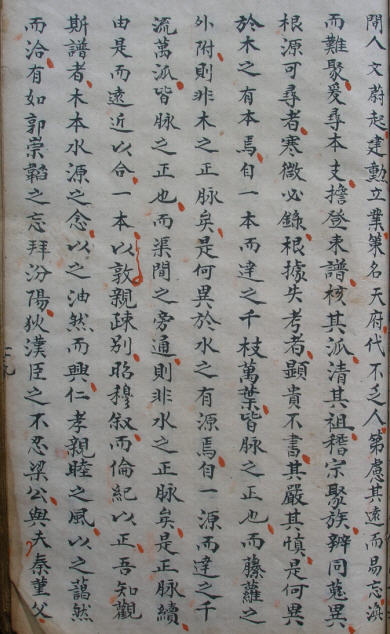 間人文蔚起建勳立業策名天府代不乏人第慮其遠而易忘渙
而難聚爰尋本支擔登来譜核其派清其祖稽宗聚族辨同蒐異
根源可尋者寒微必錄根據失考者顯貴不書其嚴其慎是何異
於木之有本焉自一本而達之千枝萬葉皆脉之正也而藤蘿之
外附則非木之正脉矣是何異於水之有源焉自一源而達之千
流萬派皆脉之正也而渠閘之旁通則非水之正脉矣是正脉續
由是而遠近以合一本以敦親疎别昭穆叙而倫紀以正吾知觀
斯譜者木本水源之念以之油然而興仁孝親睦之風以之藹然
而洽有如郭崇韜之忘拜汾陽狄漢臣之不忍梁公與夫秦堇父